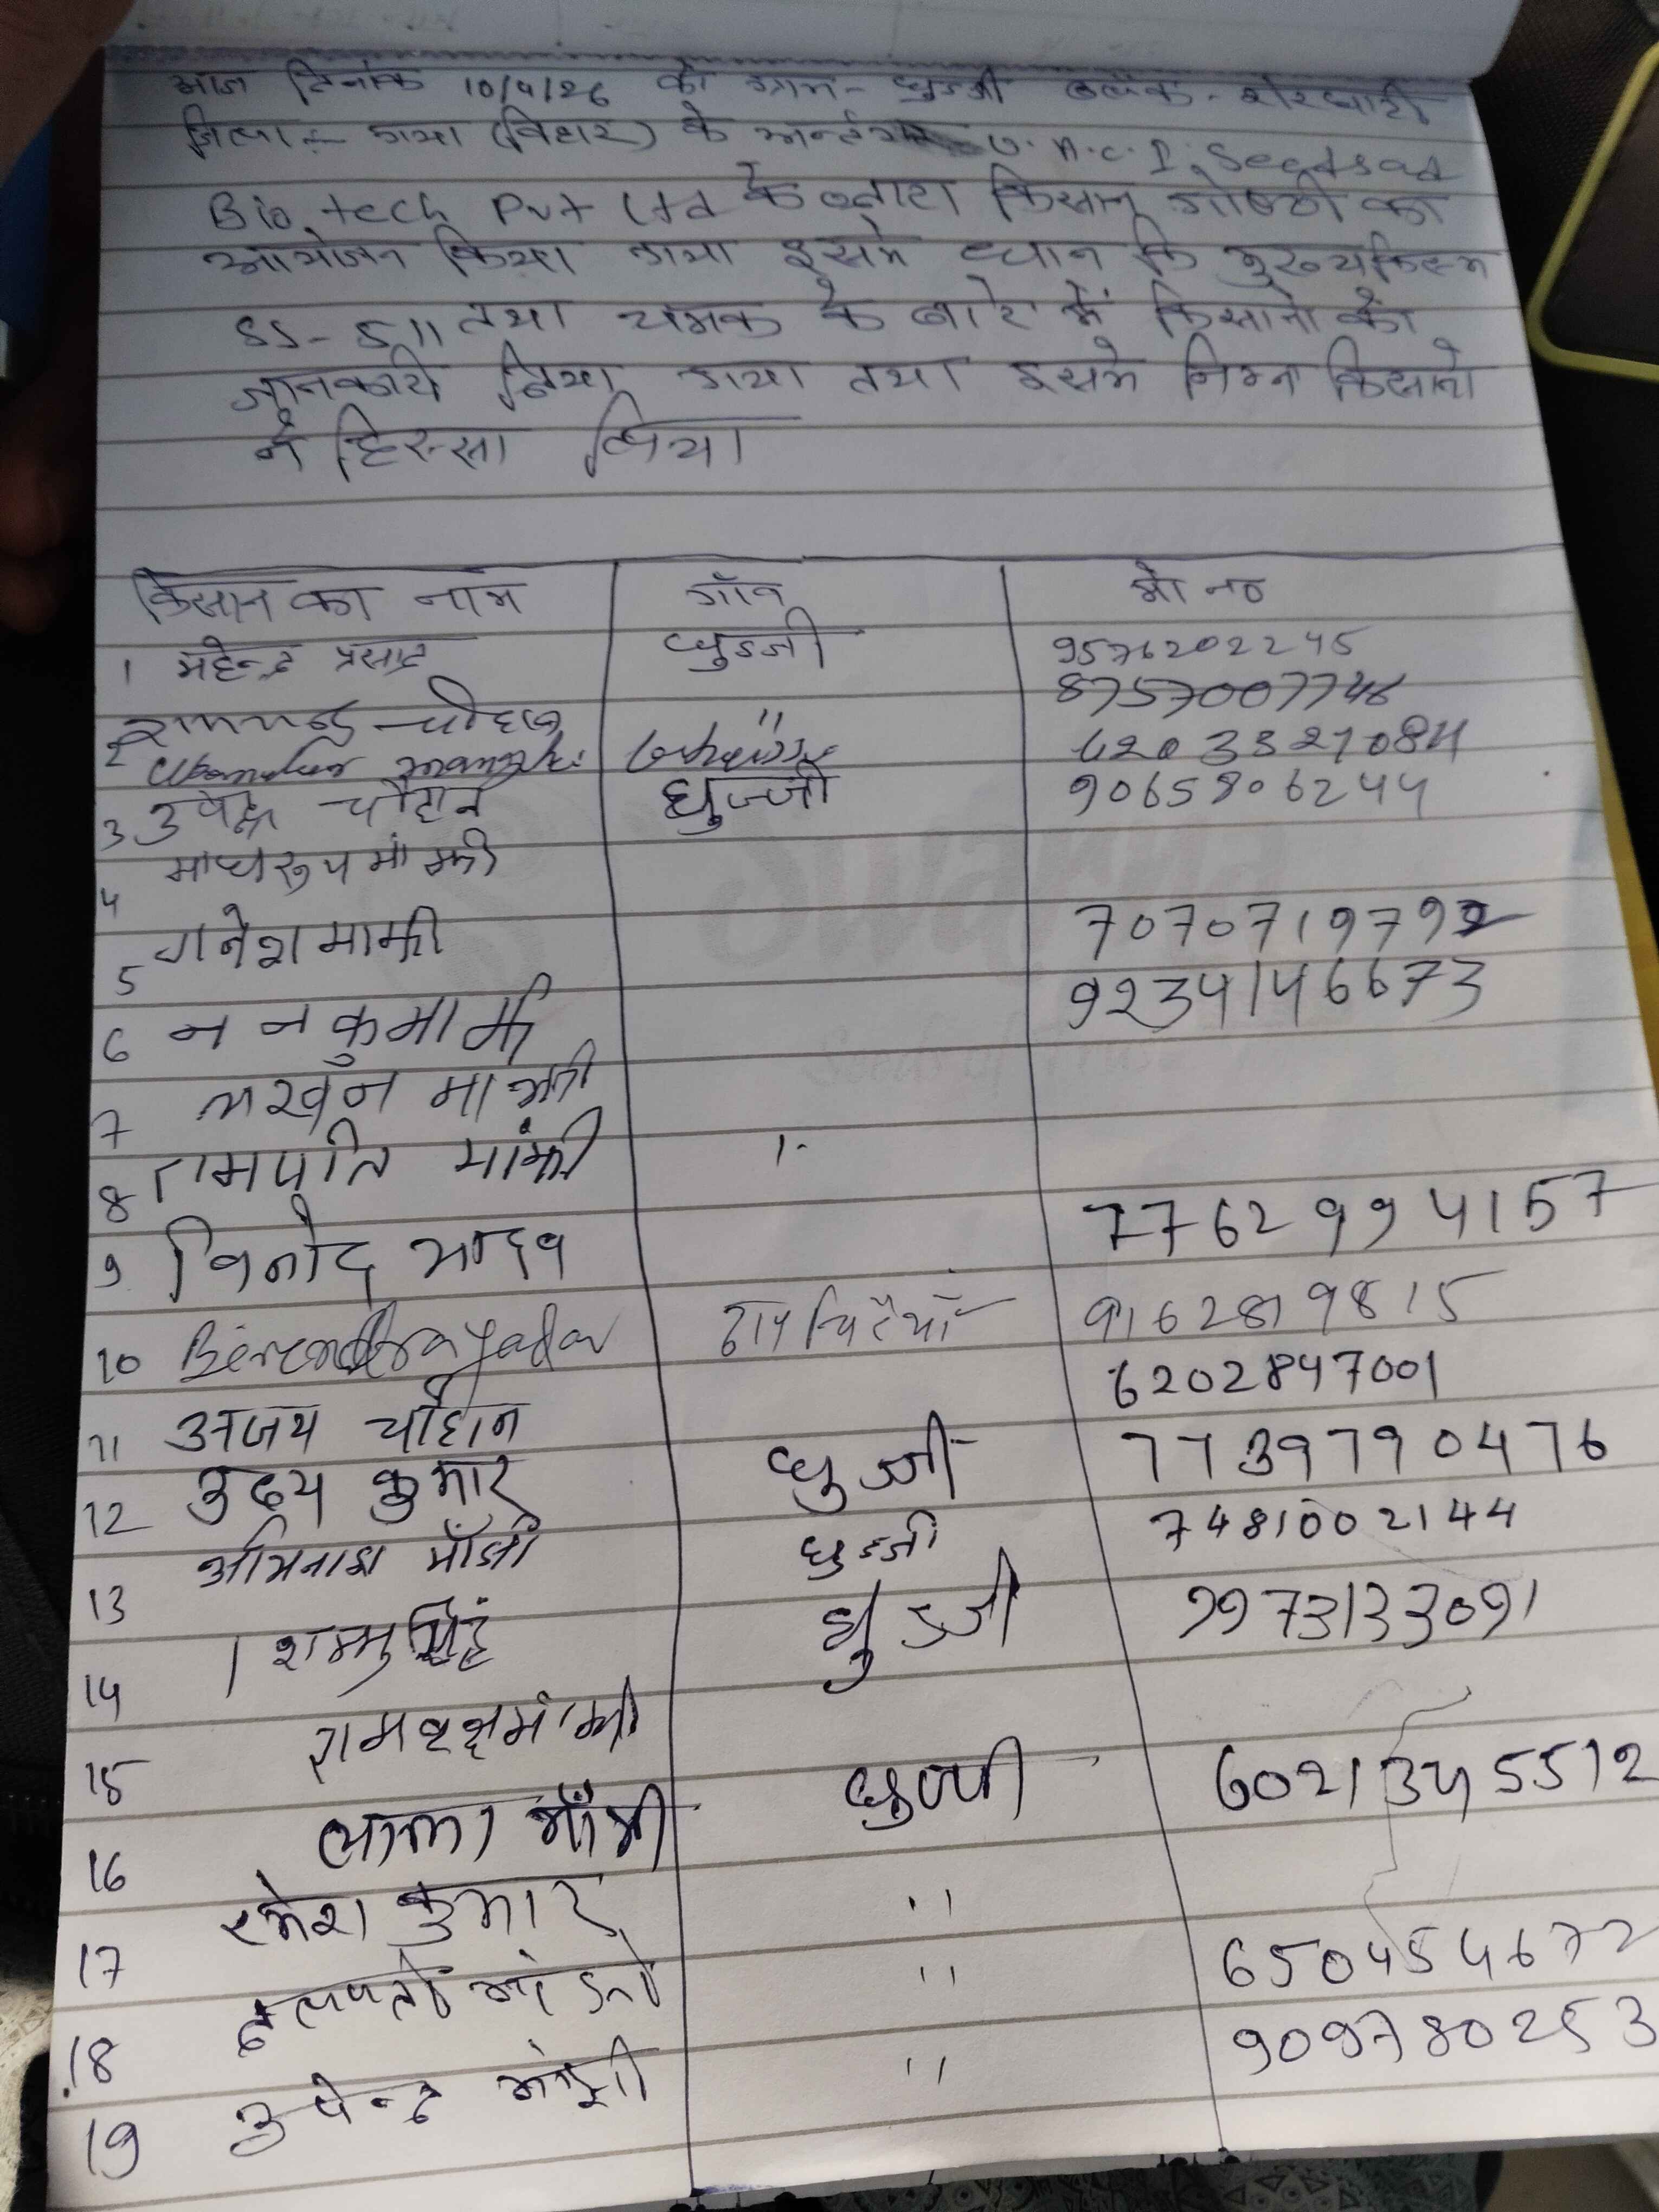 आज दिनांक 10/4/26 को ग्राम - घुज्जी ब्लॉक - शेरघाटी
जिला - गया (बिहार) के अर्न्तगत U.A.C.I. Seedsad
Bio tech Pvt Ltd के द्वारा किसान गोष्ठी का
आयोजन किया गया इसमे धान कि मुख्य किस्म
SS-511 तथा चमक के बारे में किसानो को
जानकारी दिया गया तथा इसमे निम्न किसानो
ने हिस्सा लिया
किसान का नाम गॉव मो न०
1 महेन्द्र प्रसाद घुज्जी 9576202245
2 चौहान " 8757007748
6203321084
3 उपेन्द्र चौहान घुज्जी 9065806244
4 माघरूप मांझी
5 गनेश मांझी 7070719792
6 न न कु मा झी 9234146673
7 लखन मांझी
8 रामपति मांझी "
9 विनोद यादव 7762994157
10 Birendra yadav 9162819815
11 अजय चौहान 6202847001
12 उदय कुमार घुज्जी 7739790476
13 अभिनाश माँझी घुज्जी 7481002144
14 शम्भु सिंह घुज्जी 9973133091
15
16 लाला माँझी घुज्जी 6021345512
17 रमेश कुमार "
18 " 650454672
19 उपेन्द्र मांझी " 909780253